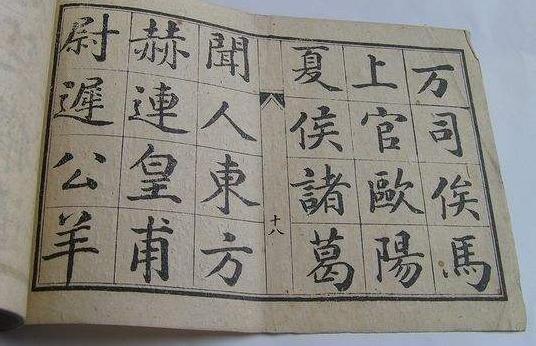 万司俟馬
上官歐陽
夏侯諸葛
十八
聞人東方
赫連皇甫
尉遲公羊